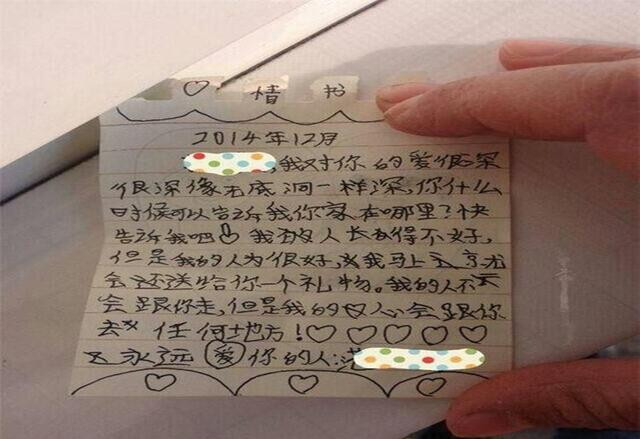 ♡ 情 书
2014年12月
,我对你的爱很深
很深像无底洞一样深,你什么
时候可以告诉我你家在哪里?快
告诉我吧! 我的人长的得不好,
但是我的人为很好,我马上
会还送给你一个礼物。我的人不
会跟你走,但是我的心会跟你
去 任何地方!♡♡♡♡♡
永远 爱 你的人: